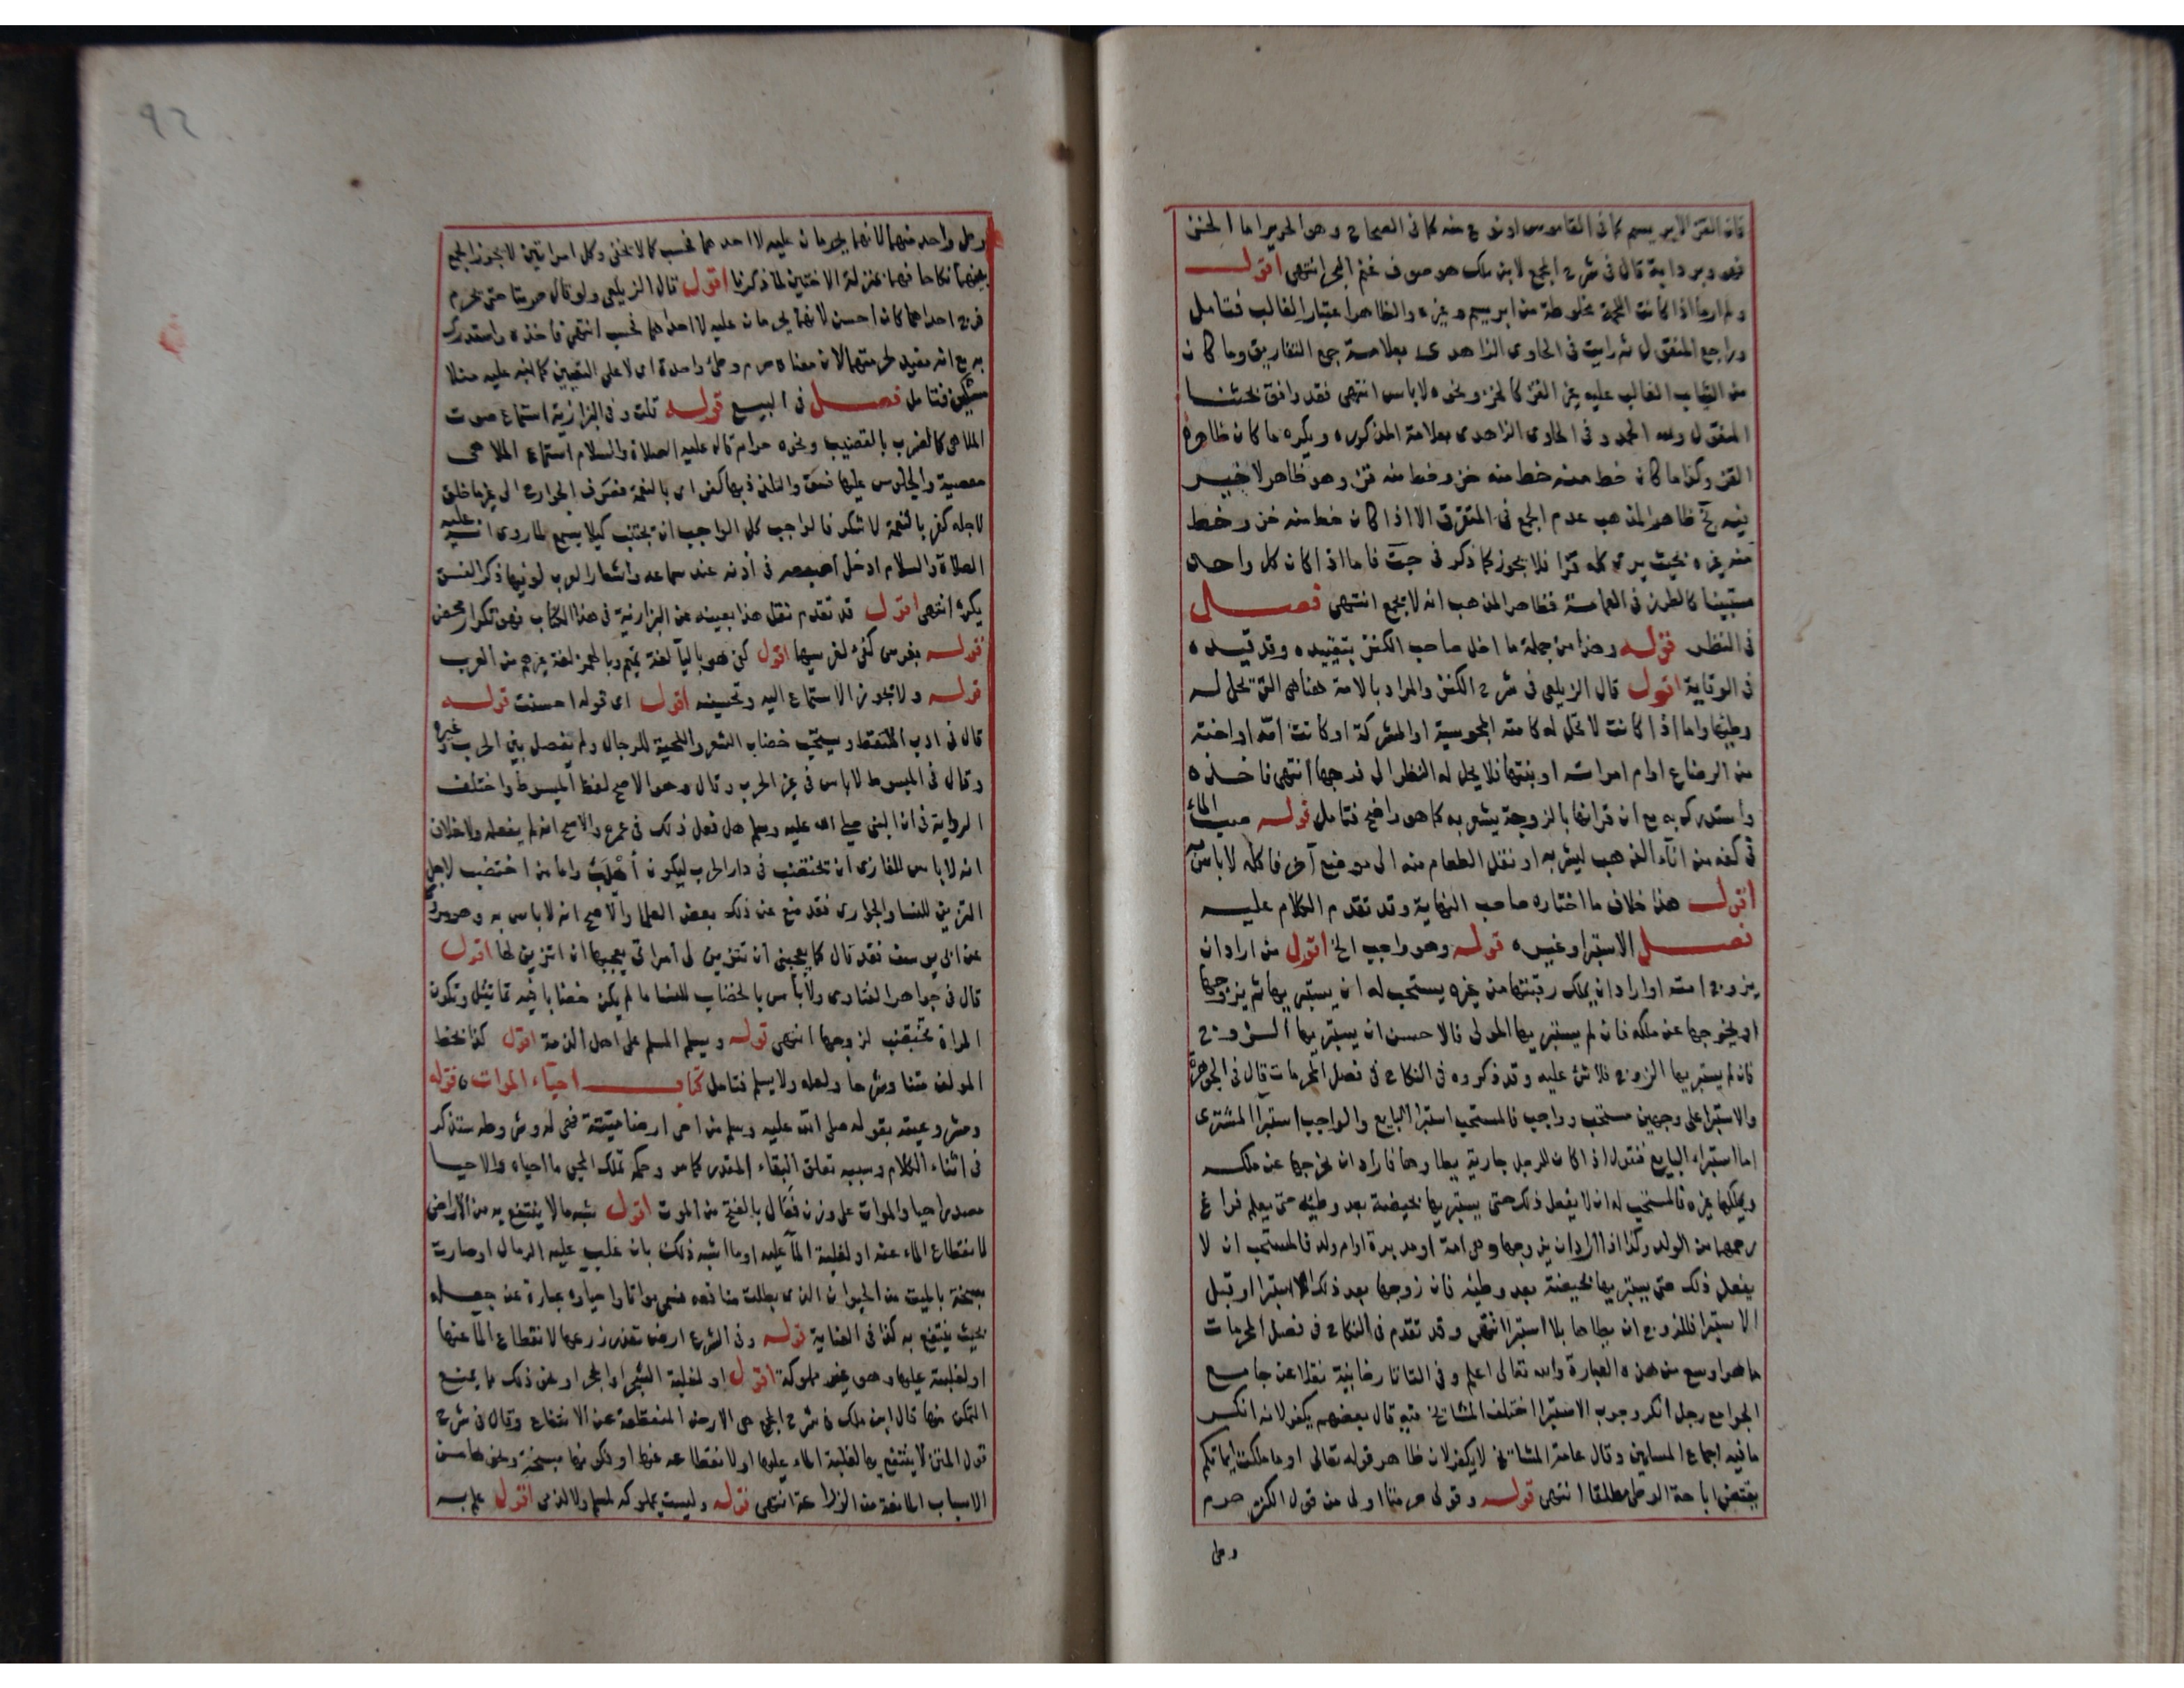 فان القز الابريسم كما فى القاموس او نوع منه كما فى الصحاح وهو الحرير اما الخز
فهو وبر دابة قال فى شرح المجمع لابن ملك هو صوف غنم البحر انتهى اقول
ولم ار ما اذا كانت اللحمة مخلوطة من ابريسم وغيره والظاهر اعتبار الغالب فتامل
وراجع المنقول ثم رايت فى الحاوى الزاهدى بعلامة جمع التفاريق وما كان
من الثياب الغالب عليه غير القز كالخز ونحوه لاباس انتهى فقد وافق بحثنا
المنقول ولله الحمد وفى الحاوى الزاهدى بعلامة المذكوره ويكره ما كان ظاهره
القز وكذا ما كان خط منه خط منه خز وخط منه قز وهو ظاهر لا خير
فيه نخ ظاهر المذهب عدم الجمع فى المتفرق الا اذا كان خط منه خز وخط
منه غيره بحيث يرى كله قزا فلا يجوز كما ذكر فى جت فاما اذا كان كل واحد
مستبينا كالطرز فى العمامة فظاهر المذهب انه لا يجمع انتهى فصل
فى النظر قوله وهذا من جملة ما اخل صاحب الكنز بتقييده وقد قيده
فى الوقاية اقول قال الزيلعى فى شرح الكنز والمراد بالامة هنا هى التى تحل له
وطيها واما اذا كانت لا تحل له كامته المجوسية او المشركة او كانت امه او اخته
من الرضاع او ام امراته او بنتها فلا يحل له النظر الى فرجها انتهى فاخذه
واستدرك به مع ان قرانها بالزوجة يشعر به كما هو واضح فتامل قوله صب الماء
فى كفه من اناء الذهب ليشربه او نقل الطعام منه الى موضع آخر فاكله لاباس به
اقول هذا خلاف ما اختاره صاحب النهاية وقد تقدم الكلام عليه
فصل الاستبرا وغيره قوله وهو واجب الخ اقول من اراد ان
يزوج امته او اراد ان يملك رقبتها من غيره يستحب له ان يستبريها ثم يزوجها
او يخرجها عن ملكه فان لم يستبريها المولى فالاحسن ان يستبريها الزوج
فان لم يستبريها الزوج فلا شى عليه وقد ذكروه فى النكاح فى فصل المحرمات قال فى الجوهرة
والاستبرا على وجهين مستحب وواجب فالمستحب استبرا البايع والواجب استبرا المشترى
اما استبراء البايع فنقول اذا كان للرجل جارية يطاوها فاراد ان يخرجها عن ملكه
ويملكها غيره فالمستحب له ان لا يفعل ذلك حتى يستبريها بحيضة بعد وطئه حتى يعلم فراغ
رحمها من الولد وكذا اذا اراد ان يزوجها وهى امة او مدبرة او ام ولد فالمستحب ان لا
يفعل ذلك حتى يستبريها بحيضة بعد وطيه فان زوجها بعد ذلك الاستبرا او قبل
الاستبرا فللزوج ان يطاها بلا استبرا انتهى وقد تقدم فى النكاح فى فصل المحرمات
ما هو اوسع من هذه العبارة والله تعالى اعلم وفى التاتارخانية نقلا عن جامع
الجوامع رجل انكر وجوب الاستبرا اختلف المشايخ فيه قال بعضهم يكفر لانه انكر
ما فيه اجماع المسلمين وقال عامة المشايخ لا يكفر لان ظاهر قوله تعالى او ما ملكت ايمانكم
يقتضى اباحة الوطى مطلقا انتهى قوله وقولى حرمتا اولى من قول الكنز حرم
وطى
وطى واحد منهما لانهما يحرمان عليه لا احدهما فحسب كما لا يخفى وكل امراتين لا يجوز الجمع
بينهما نكاحا فهما بمنزلة الاختين لما ذكرنا اقول قال الزيلعى ولو قال حرمتا حتى يحرم
فرج احداهما كان احسن لانهما يحرمان عليه لا احداهما فحسب انتهى فاخذه واستدرك
به مع انه مفيد لحرمتهما لان معناه حرم وطئ واحدة اى لا على التعيين كما نبه عليه منلا
مسكين فتامل فصل فى البيع قوله قلت وفى البزازية استماع صوت
الملاهى كالضرب بالقضيب ونحوه حرام قال عليه الصلاة والسلام استماع الملاهى
معصية والجلوس عليها فسق والتلذذ بها كفر اى بالنعمة فصرف الجوارح الى غير ما خلق
لاجله كفر بالنعمة لا شكر فالواجب كل الواجب ان يجتنب كيلا يسمع لما روى انه عليه
الصلاة والسلام ادخل اصبعه فى اذنه عند سماعه واشعار العرب لو فيها ذكر الفسق
يكره انتهى اقول قد تقدم نقل هذا بعينه عن البزازية فى هذا الكتاب فهو تكرار محض
قوله اقول كفى هو باليآ لغة تميم وبالهمز لغة غيرهم من العرب
قوله ولا يجوز الاستماع اليه وتحسينه اقول اى قوله احسنت قوله
قال فى ادب الملتقط ويستحب خضاب الشعر واللحية للرجال ولم يفصل بين الحرب وغيره
وقال فى المبسوط لاباس فى غير الحرب وقال وهو الاصح لفظ المبسوط واختلف
الرواية فى ان النبى صلى الله عليه وسلم هل فعل ذلك فى عمره والاصح انه لم يفعله ولا خلاف
انه لاباس للغازى ان يختضب فى دار الحرب ليكون أهيب واما من اختضب لاجل
التزين للنسا والجوارى فقد منع عن ذلك بعض العلما والاصح انه لاباس به وهو مروى
عن ابى يوسف فقد قال كما يعجبنى ان تتزين لى امراتى يعجبها ان اتزين لها اقول
قال فى جواهر الفتاوى ولاباس بالخضاب للنسا ما لم يكن خضابا فيه تماثيل وتكون
المراة تختضب لزوجها انتهى قوله ويسلم المسلم على اهل الذمة اقول كذا بخط
المولف متنا وشرحا ولعله ولا يسلم فتامل كتاب احياء الموات قوله
ومشروعيته بقوله صلى الله عليه وسلم من احى ارضا ميتة فهى له وشروطه ستذكر
فى اثناء الكلام وسببه تعلق البقاء المقدر كما مر وحكمه تملك المحيى ما احياه والاحيا
مصدر احيا والموات على وزن فَعَال بالفتح من الموت اقول شبه ما لا ينتفع به من الاراضى
لانقطاع الماء عنه او لغلبة المآ عليه او ما اشبه ذلك بان غلب عليه الرمال او صارت
سبخة بالميت من الحيوان الذى بطلت منافعه فسمى مواتا واحياوه عبارة عن جعله
بحيث ينتفع به كذا فى العناية قوله وفى الشرع ارض تعذر زرعها لانقطاع الما عنها
او لغلبته عليها وهو غير مملوكة اقول او لغلبة الشجر او الحجر او غير ذلك مما يمنع
التمكن منها قال ابن ملك فى شرح المجمع هى الارض المنقطعة عن الانتفاع وقال فى شرح
قول المتن لا ينتفع بها لغلبة الماء عليها او لانقطاعه عنها او لكونها سبخة ونحوها من
الاسباب المانعة من الزراعة انتهى قوله وليست بمملوكه لمسلم ولا لذمى اقول علم به